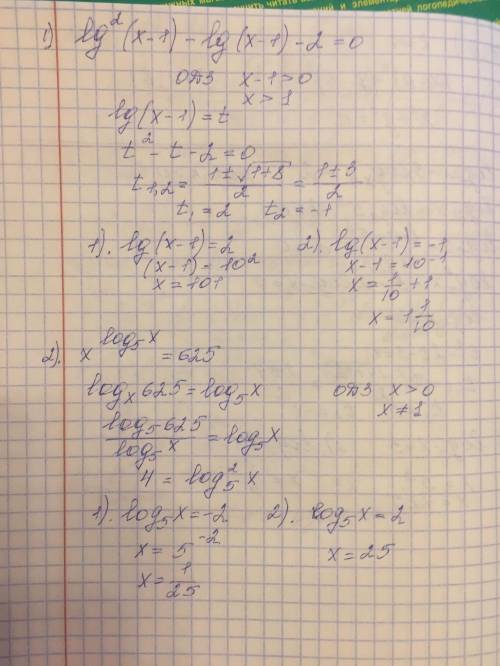 1) lg²(x-1) - lg(x-1) - 2 = 0
ОДЗ x-1>0
x>1
lg(x-1) = t
t² - t - 2 = 0
t₁,₂ = (1±√(1+8))/2 = (1±3)/2
t₁ = 2 t₂ = -1
1). lg(x-1) = 2
(x-1) = 10²
x = 101
2). lg(x-1) = -1
x-1 = 10⁻¹
x = 1/10 + 1
x = 1 1/10
2). x^(log₅x) = 625
logₓ625 = log₅x ОДЗ x>0
x≠1
log₅625/log₅x = log₅x
4 = log₅²x
1). log₅x = -2
x = 5⁻²
x = 1/25
2). log₅x = 2
x = 25